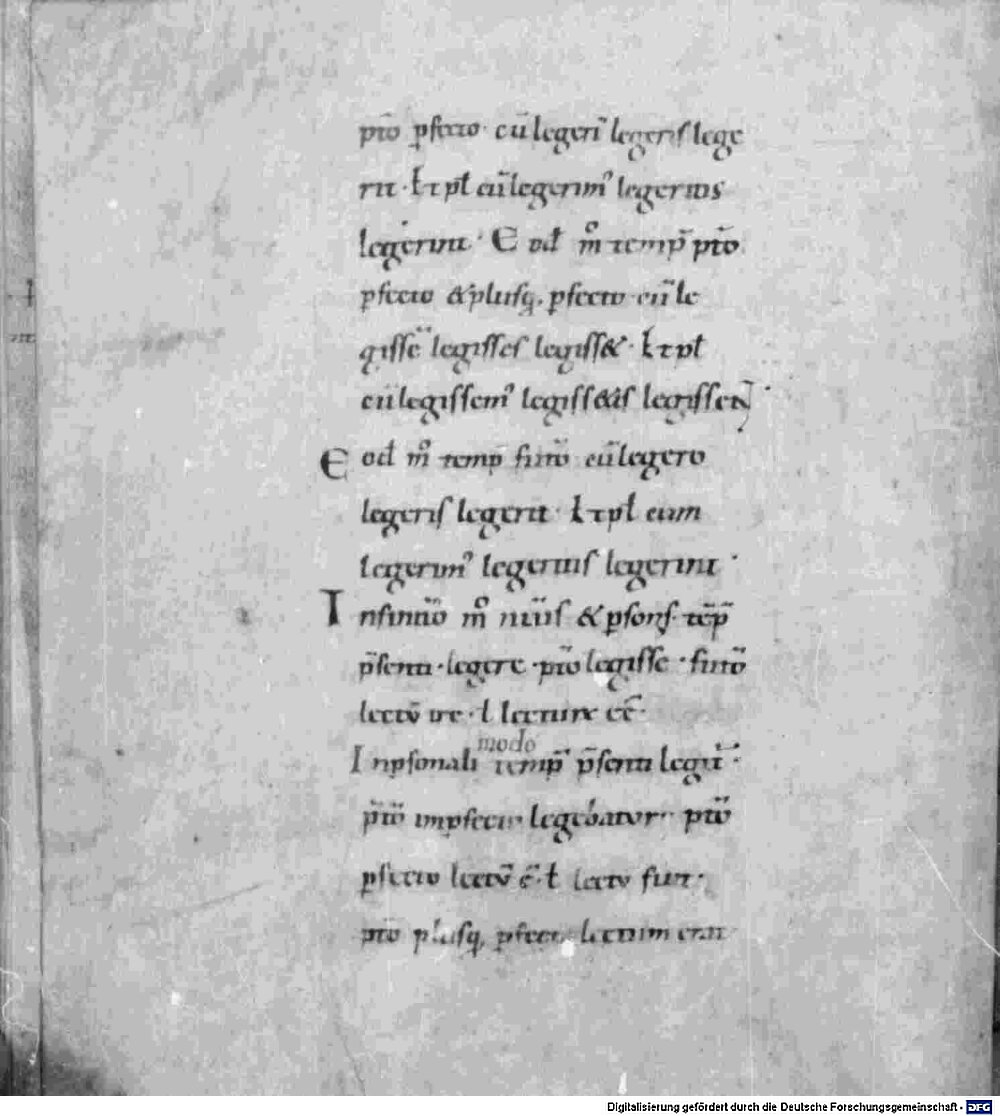 p̄tō p̱fecto· cū legeri͂ legeris lege
rit · ł τ pł cū legerim᾽ legeritis
legerint · Eodē mͦ temp̄ p̄tō
p̱fecto & plusq, p̱fecto cū le
gissē legisses legiss& · ł τ pł
cū legissem᾽ legiss&is legissent ·
Eodē mͦ temp̄ futō cū legero
legeris legerit · ł τ pł cum
legerim᾽ legeritis legerint ·
Infinitō mͦ nūīs & p̱sonis tēp̄
p̄senti · legere · p̄tō legisse · futō
lectū ire · ł lecturū eē ·
Inp̱sonali modo temp̄ p̄senti legit̄ ·
p̄tō imp̱fecto legebatur · p̄tō
p̱fecto lectū ē · ł lectū fuit ·
p̄tō plusq, p̱fecto lectum erat
Digitalisierung gefördert durch die Deutsche Forschungsgemeinschaft - DFG